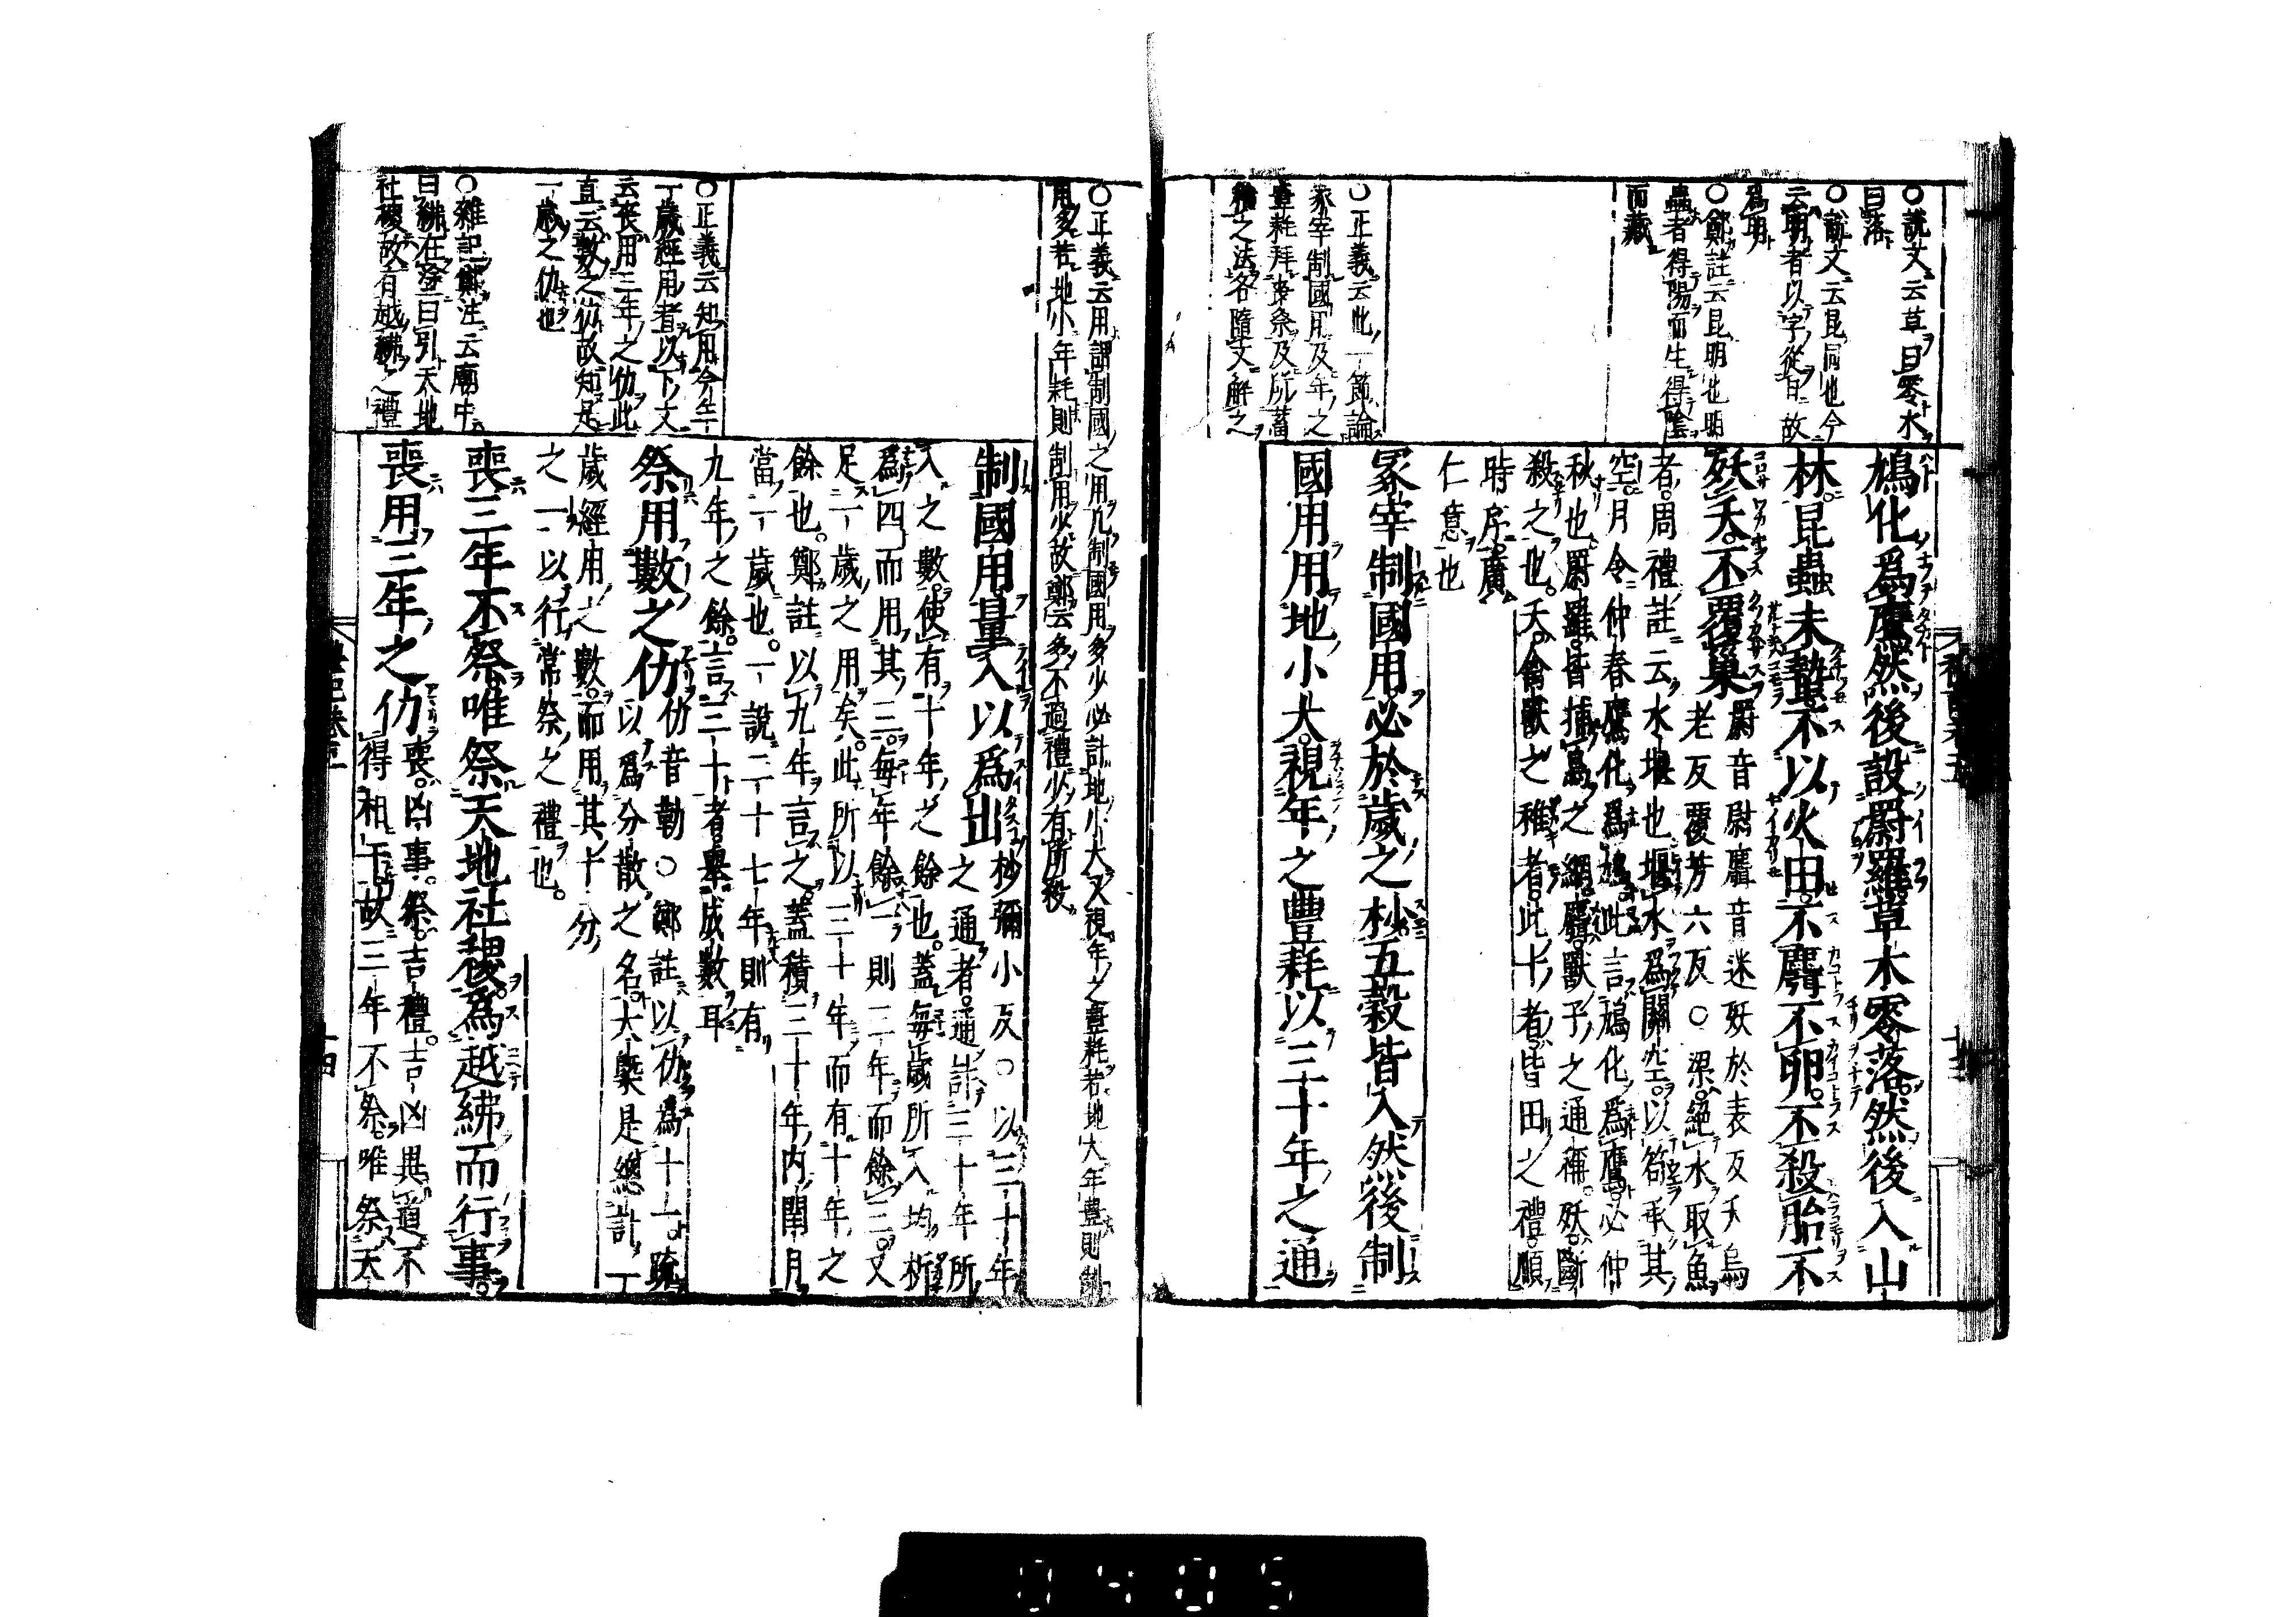 ○説文云草曰零木
曰落
○説文云昆同也今
云明者以字從日故
爲明
○鄭註云昆明也明
蟲者得陽而生得陰
而藏
○正義云此一節論
冢宰制國用及年之
豊耗拜喪祭及所蓄
積之法各隨文解之
鳩化爲鷹然後設罻羅草木零落然後入山
林昆蟲未蟄不以火田不麛不卵不殺胎不
殀夭不覆巢
罻音尉麛音迷殀於表反夭烏
老反覆芳六反○梁絶水取魚
者周禮註云水堰也堰水爲關空以笱承其
空月令仲春鷹化爲鳩此言鳩化爲鷹必仲
秋也罻羅皆捕鳥之網麛獸子之通稱殀斷
殺之也夭禽獸之稚者此十者皆田之禮順
時序廣
仁意也
冢宰制國用必於歲之杪五穀皆入然後制
國用用地小大視年之豐耗以三十年之通
○正義云用謂制國之用凡制國用多少必計地小大又視年之豊耗若地大年豊則制
用多若地小年耗則制用少故鄭云多不過禮少有所殺
○正義云知用今年
一歲經用者以下文
云喪用三年之仂此
直云數之仂故知是
一歲之仂也
○雜記鄭注云廟中
曰紼在塗曰引天地
社稷故有越紼之禮
制國用量入以爲出
杪彌小反○以三十年
之通者通計三十年所
入之數使有十年之餘也蓋每歲所入均析
爲四而用其三每年餘一則三年而餘三又
足一歲之用矣此所以三十年而有十年之
餘也鄭註以九年言之蓋積三十年內閏月
當一歲也一說二十七年則有
九年之餘言三十者擧成數耳
祭用數之仂
仂音勒○鄭註以仂爲十一疏
以爲分散之名大槩是總計一
歲經用之數而用其十分
之一以行常祭之禮也
喪三年不祭唯祭天地社稷爲越紼而行事
喪用三年之仂
喪凶事祭吉禮吉凶異道不
得相干故三年不祭唯祭天